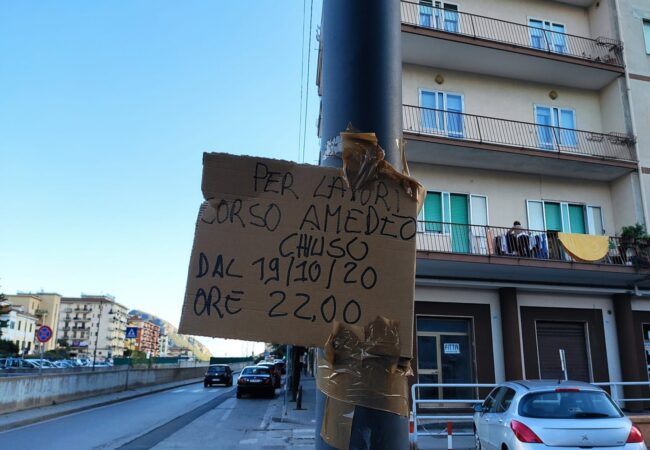 PER LAVORI
CORSO AMEDEO
CHIUSO
DAL 19/10/20
ORE 22,00